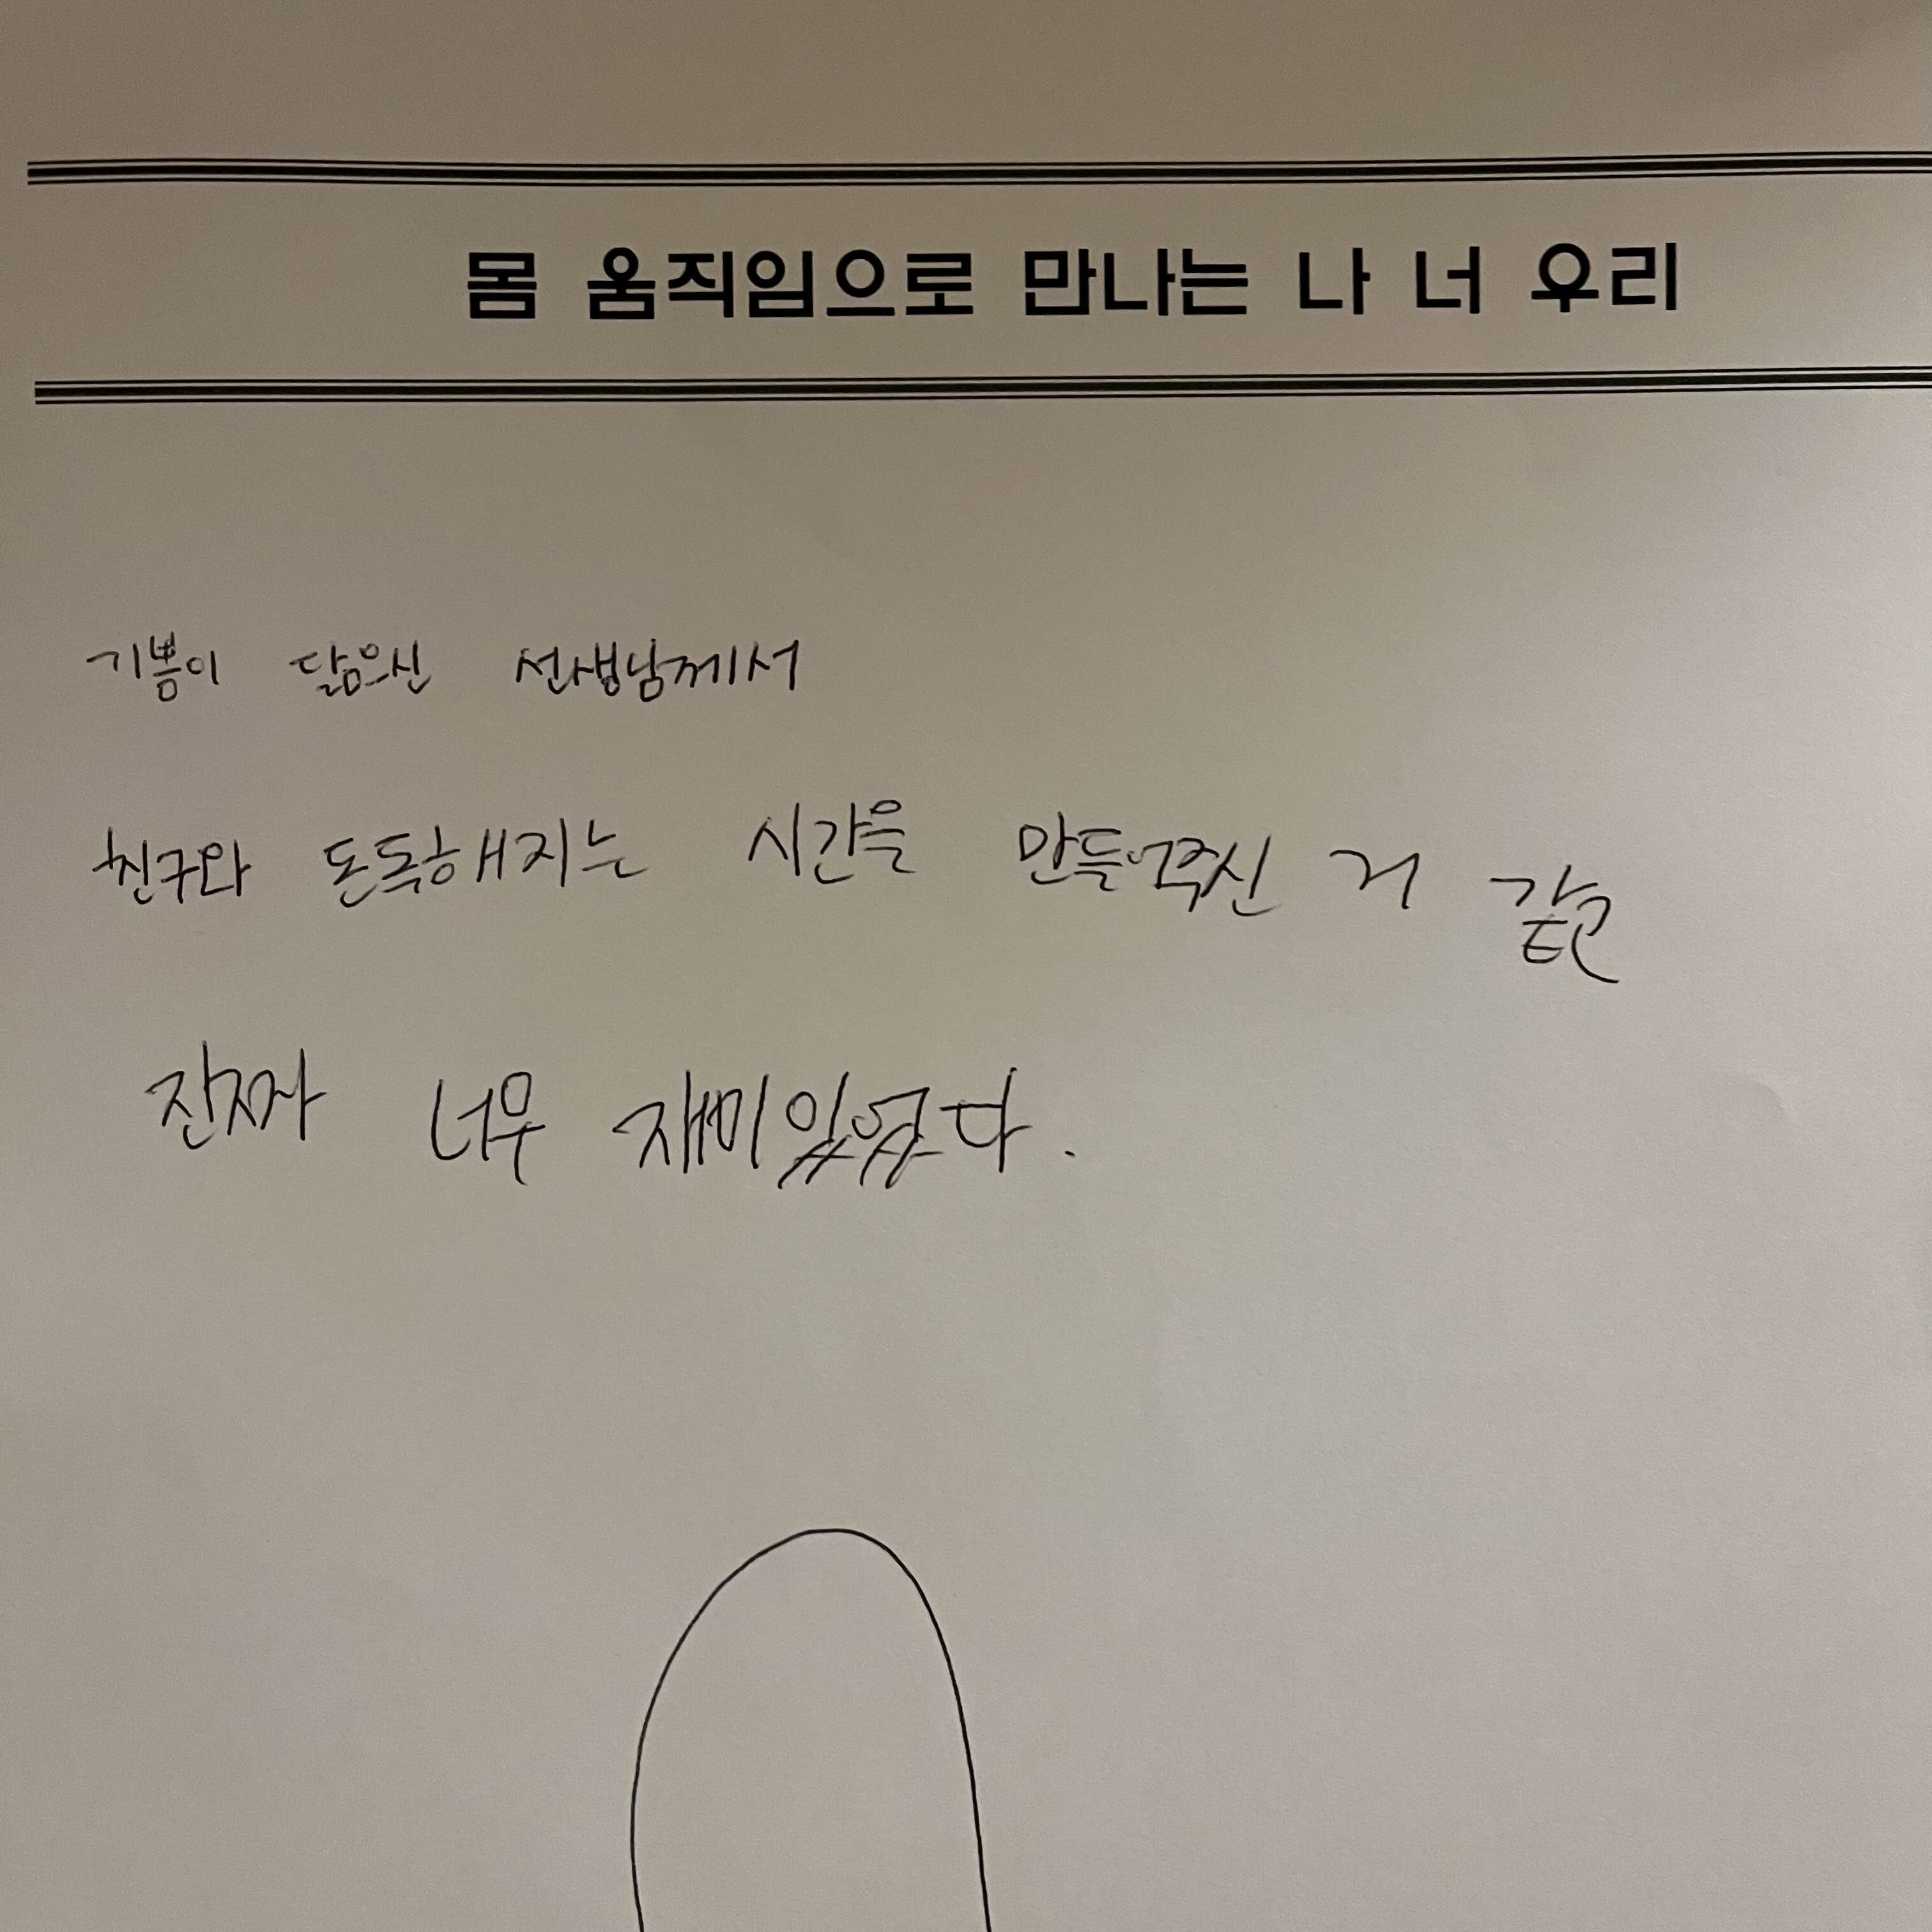 몸 움직임으로 만나는 나 너 우리
기쁨이 닮으신 선생님께서
친구와 돈독해지는 시간을 만들어주신 거 같고
진짜 너무 재미있었다.